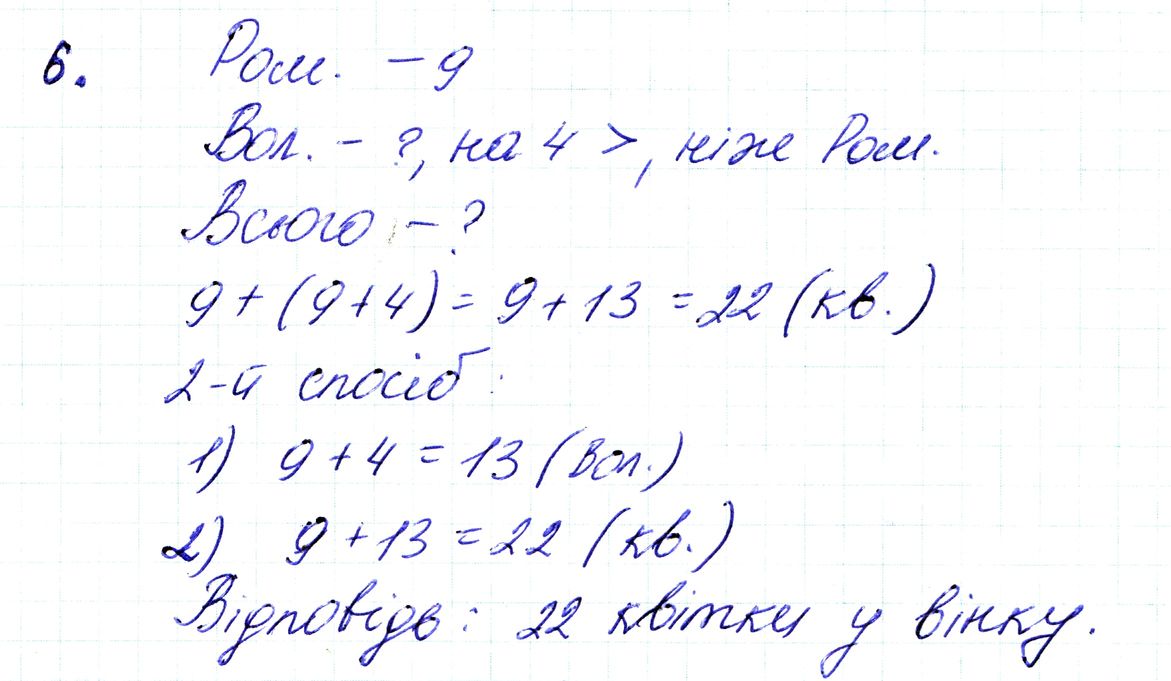 6. Ром. - 9
Вол. - ?, на 4 >, ніж Ром.
Всього - ?
9 + (9+4) = 9 + 13 = 22 (кв.)
2-й спосіб:
1) 9 + 4 = 13 (Вол.)
2) 9 + 13 = 22 (кв.)
Відповідь: 22 квітки у вінку.